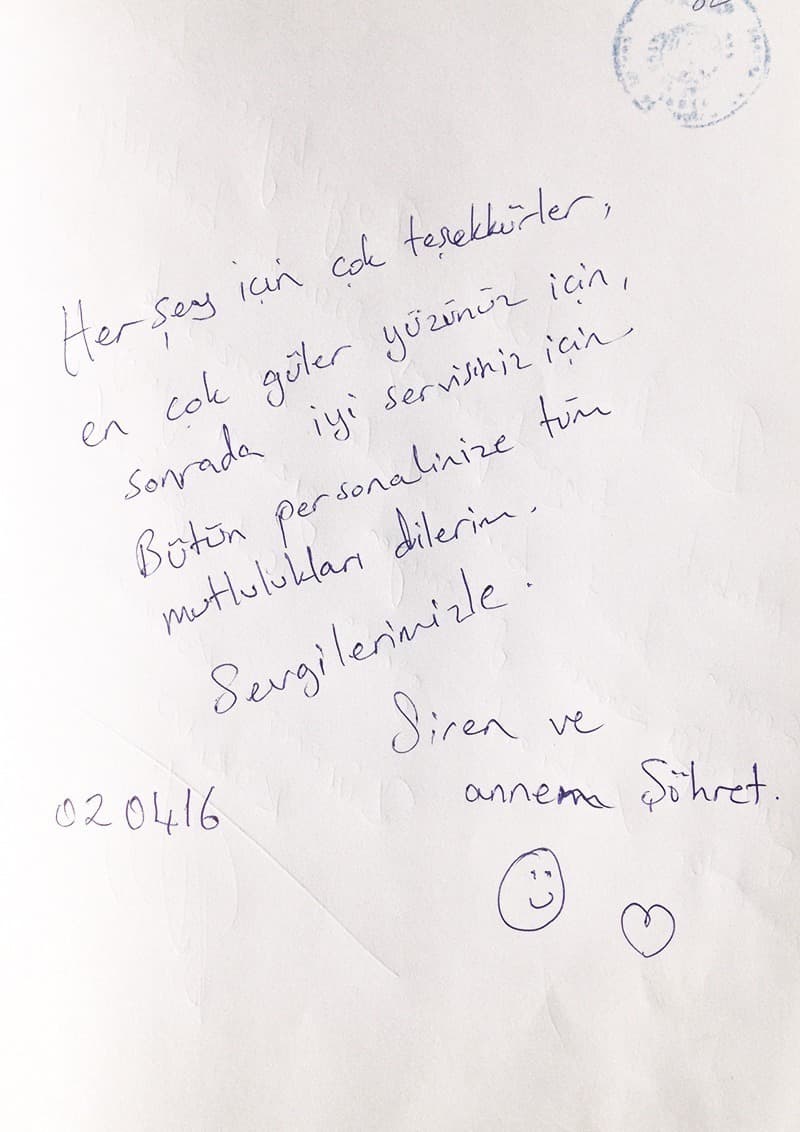 Her şey için çok teşekkürler,
en çok güler yüzünüz için,
sonrada iyi servisiniz için
Bütün personalinize tüm
mutlulukları dilerim.
Sevgilerimizle.
Siren ve
annem Şöhret.
020416